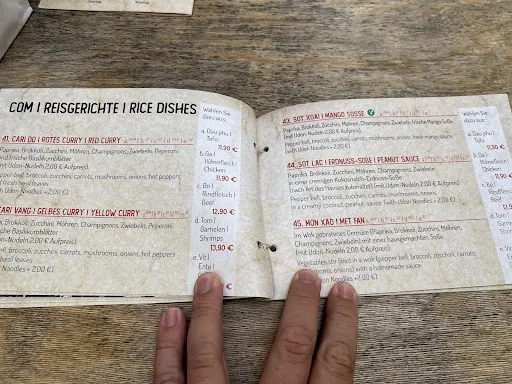 COM I REISGERICHTE I RICE DISHES
41. CARI DO I ROTES CURRY I RED CURRY
Paprika, Brokkoli, Zucchini, Möhren, Champignons, Zwiebeln, Peperoni
und frische Basilikumblätter
(mit Udon-Nudeln 2,00 € Aufpreis)
bell pepper, broccoli, zucchini, carrots, mushrooms, onions, hot peppers
fresh basil leaves
Udon Noodles + 2,00 €)
CARI VANG I GELBES CURRY I YELLOW CURRY
Brokkoli, Zucchini, Möhren, Champignons, Zwiebeln, Peperoni
Basilikumblätter
Udon-Nudeln 2,00 € Aufpreis)
broccoli, zucchini, carrots, mushrooms, onions, hot peppers
basil leaves
Noodles + 2,00 €)
Wählen Sie
dazu aus:
a. Dau phu I
Tofu
11,90 €
b. Ga I
Hühnerfleisch I
Chicken
11,90 €
c. Bo I
Rindfleisch I
Beef
12,90 €
d. Tom I
Garnelen I
Shrimps
13,90 €
e. Vit I
Ente I
43. SOT XOAI I MANGO SOSSE
Paprika, Brokkoli, Zucchini, Möhren, Champignons, Zwiebeln, frische Mango-Soße
(mit Udon-Nudeln 2,00 € Aufpreis)
Pepper bell, broccoli, zucchini, carrots, mushrooms, onions, fresh mango sauce
(with Udon Noodles + 2,00 €)
44. SOT LAC I ERDNUSS-SOßE I PEANUT SAUCE
Paprika, Brokkoli, Zucchini, Möhren, Champignons, Zwiebeln
in einer cremigen Kokosmilch-Erdnuss-Soße
(nach Art des Hauses zubereitet) (mit Udon-Nudeln 2,00 € Aufpreis)
Pepper bell, broccoli, zucchini, carrots, mushrooms, onions
in a creamy coconut-peanut-sauce (with Udon Noodles + 2,00 €)
45. MON XAO I MET FAN
Im Wok gebratenes Gemüse (Paprika, Brokkoli, Zucchini, Möhren,
Champignons, Zwiebeln) mit einer hausgemachten Soße
(mit Udon-Nudeln 2,00 € Aufpreis)
Vegetables stir fried in a wok (pepper bell, broccoli, zucchini, carrots
mushrooms, onions) with a homemade sauce
Noodles + 2,00 €)
Wählen Sie
dazu aus:
a. Dau phu I
Tofu
b. Ga I
Hühnerfleisch I
Chicken
c. Bo I
Rindfleisch I
Beef
d. Tom I
Garnelen
Shrimps
e. Vit I
Ente I